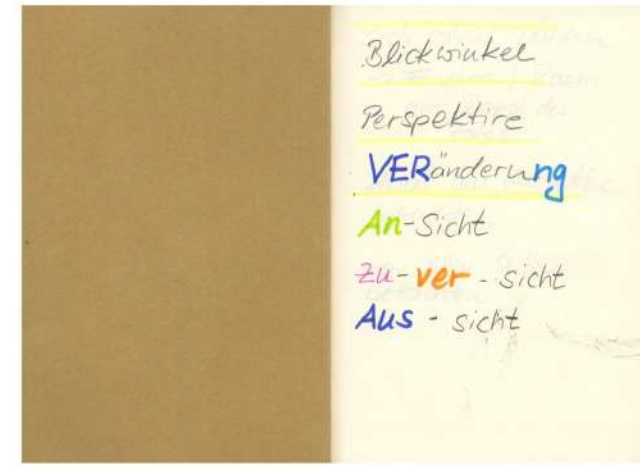 Blickwinkel
Perspektive
VERänderung
An-Sicht
Zu-ver-sicht
Aus-sicht